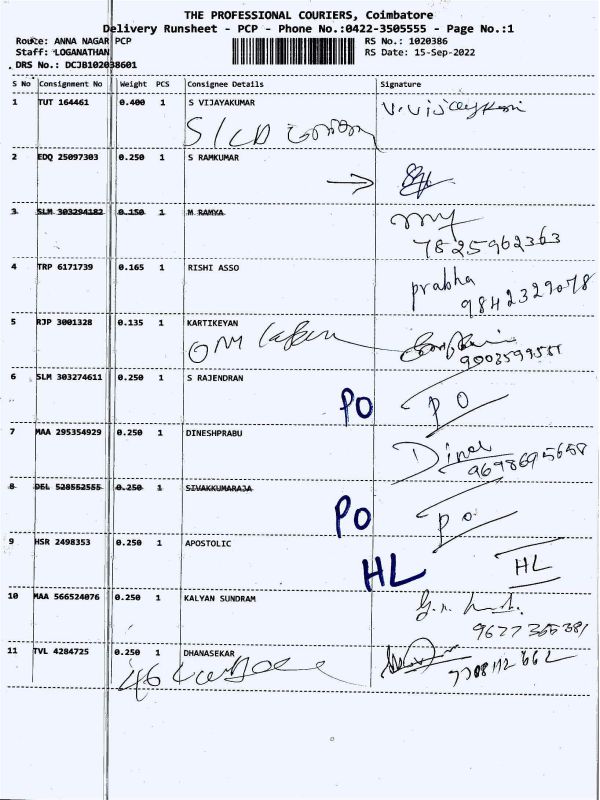 THE PROFESSIONAL COURIERS, Coimbatore
Delivery Runsheet - PCP - Phone No.:0422-3505555 - Page No.:1
Route: ANNA NAGAR PCP
Staff: LOGANATHAN
DRS No.: DCJB102038601
RS No.: 1020386
RS Date: 15-Sep-2022
S No Consignment No Weight PCS Consignee Details Signature
1 TUT 164461 0.400 1 S VIJAYAKUMAR
2 EDQ 25097303 0.250 1 S RAMKUMAR
3 SLM 303294182 0.150 1 M RAMYA
7825962363
4 TRP 6171739 0.165 1 RISHI ASSO
prabha
9842329078
5 RJP 3001328 0.135 1 KARTIKEYAN
6 SLM 303274611 0.250 1 S RAJENDRAN
PO PO
7 MAA 295354929 0.250 1 DINESHPRABU
8 DEL 528552555 0.250 1 SIVAKKUMARAJA
PO PO
9 HSR 2498353 0.250 1 APOSTOLIC
HL HL
10 MAA 566524076 0.250 1 KALYAN SUNDRAM
11 TVL 4284725 0.250 1 DHANASEKAR